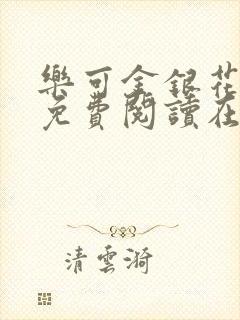 樂可金銀花
免費閱讀在
清雲漪